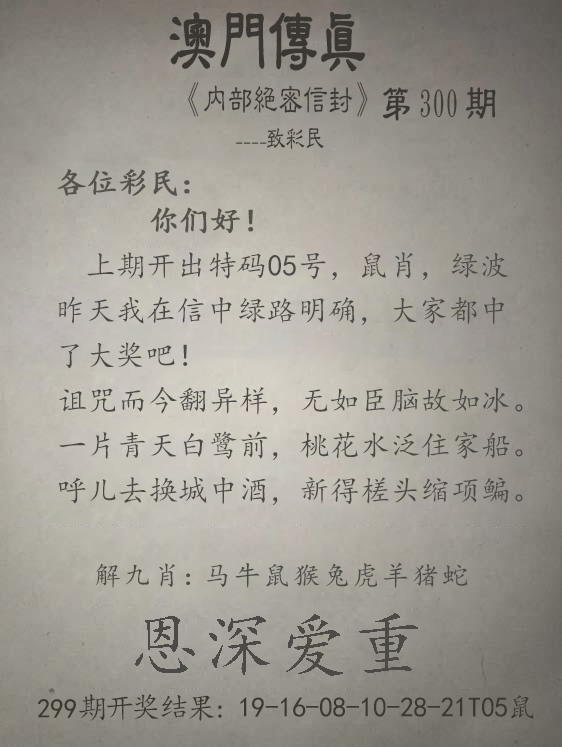 澳門傳眞
《内部絕密信封》第300期
----致彩民
各位彩民：
你们好！
上期开出特码05号，鼠肖，绿波
昨天我在信中绿路明确，大家都中
了大奖吧！
诅咒而今翻异样，无如臣脑故如冰。
一片青天白鹭前，桃花水泛住家船。
呼儿去换城中酒，新得槎头缩项鳊。
解九肖：马牛鼠猴兔虎羊猪蛇
恩深爱重
299期开奖结果：19-16-08-10-28-21T05鼠